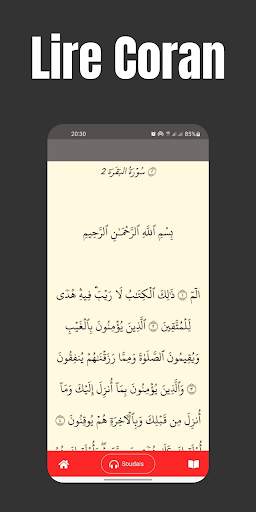 Lire Coran
20:30
85%
۞ سُورَةُ البَقَرَة 2
بِسْمِ ٱللَّهِ ٱلرَّحْمَـٰنِ ٱلرَّحِيمِ
الٓمٓ ۞ ذَٰلِكَ ٱلْكِتَـٰبُ لَا رَيْبَ ۛ فِيهِ ۛ هُدًى
لِّلْمُتَّقِينَ ۞ ٱلَّذِينَ يُؤْمِنُونَ بِٱلْغَيْبِ
وَيُقِيمُونَ ٱلصَّلَوٰةَ وَمِمَّا رَزَقْنَـٰهُمْ يُنفِقُونَ
۞ وَٱلَّذِينَ يُؤْمِنُونَ بِمَآ أُنزِلَ إِلَيْكَ وَمَآ
أُنزِلَ مِن قَبْلِكَ وَبِٱلْـَٔاخِرَةِ هُمْ يُوقِنُونَ ۞
Soudais